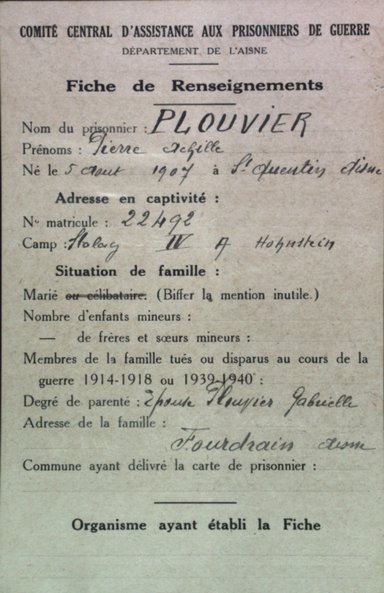 COMITÉ CENTRAL D'ASSISTANCE AUX PRISONNIERS DE GUERRE
DÉPARTEMENT DE L'AISNE
Fiche de Renseignements
Nom du prisonnier : PLOUVIER
Prénoms : Pierre Achille
Né le 5 Aout 1907 à St Quentin Aisne
Adresse en captivité :
No matricule : 22492
Camp : Stalag IV A Hohnstein
Situation de famille :
Marié ou célibataire. (Biffer la mention inutile.)
Nombre d'enfants mineurs :
— de frères et sœurs mineurs :
Membres de la famille tués ou disparus au cours de la
guerre 1914-1918 ou 1939-1940 :
Degré de parenté : Epouse Plouvier Gabrielle
Adresse de la famille :
Fourdrain Aisne
Commune ayant délivré la carte de prisonnier :
Organisme ayant établi la Fiche